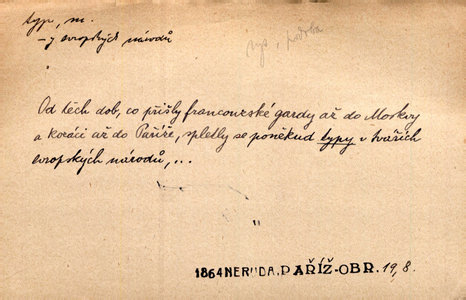 typ, m.
rys, podoba
– y evropských národů
Od těch dob, co přišly francouzské gardy až do Moskvy
a kozáci až do Paříže, spletly se poněkud typy v tvářích
evropských národů,...
1864 NERUDA, PAŘÍŽ-OBR. 19, 8.